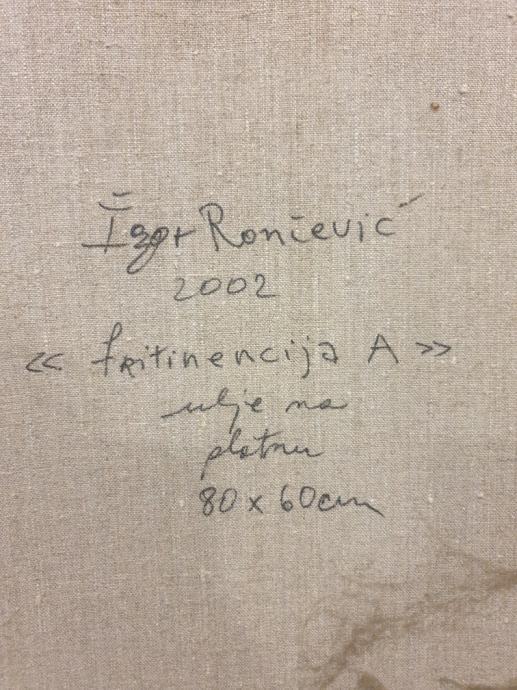 Igor Rončević
2002
« fritinencija A »
ulje na
platnu
80 x 60 cm